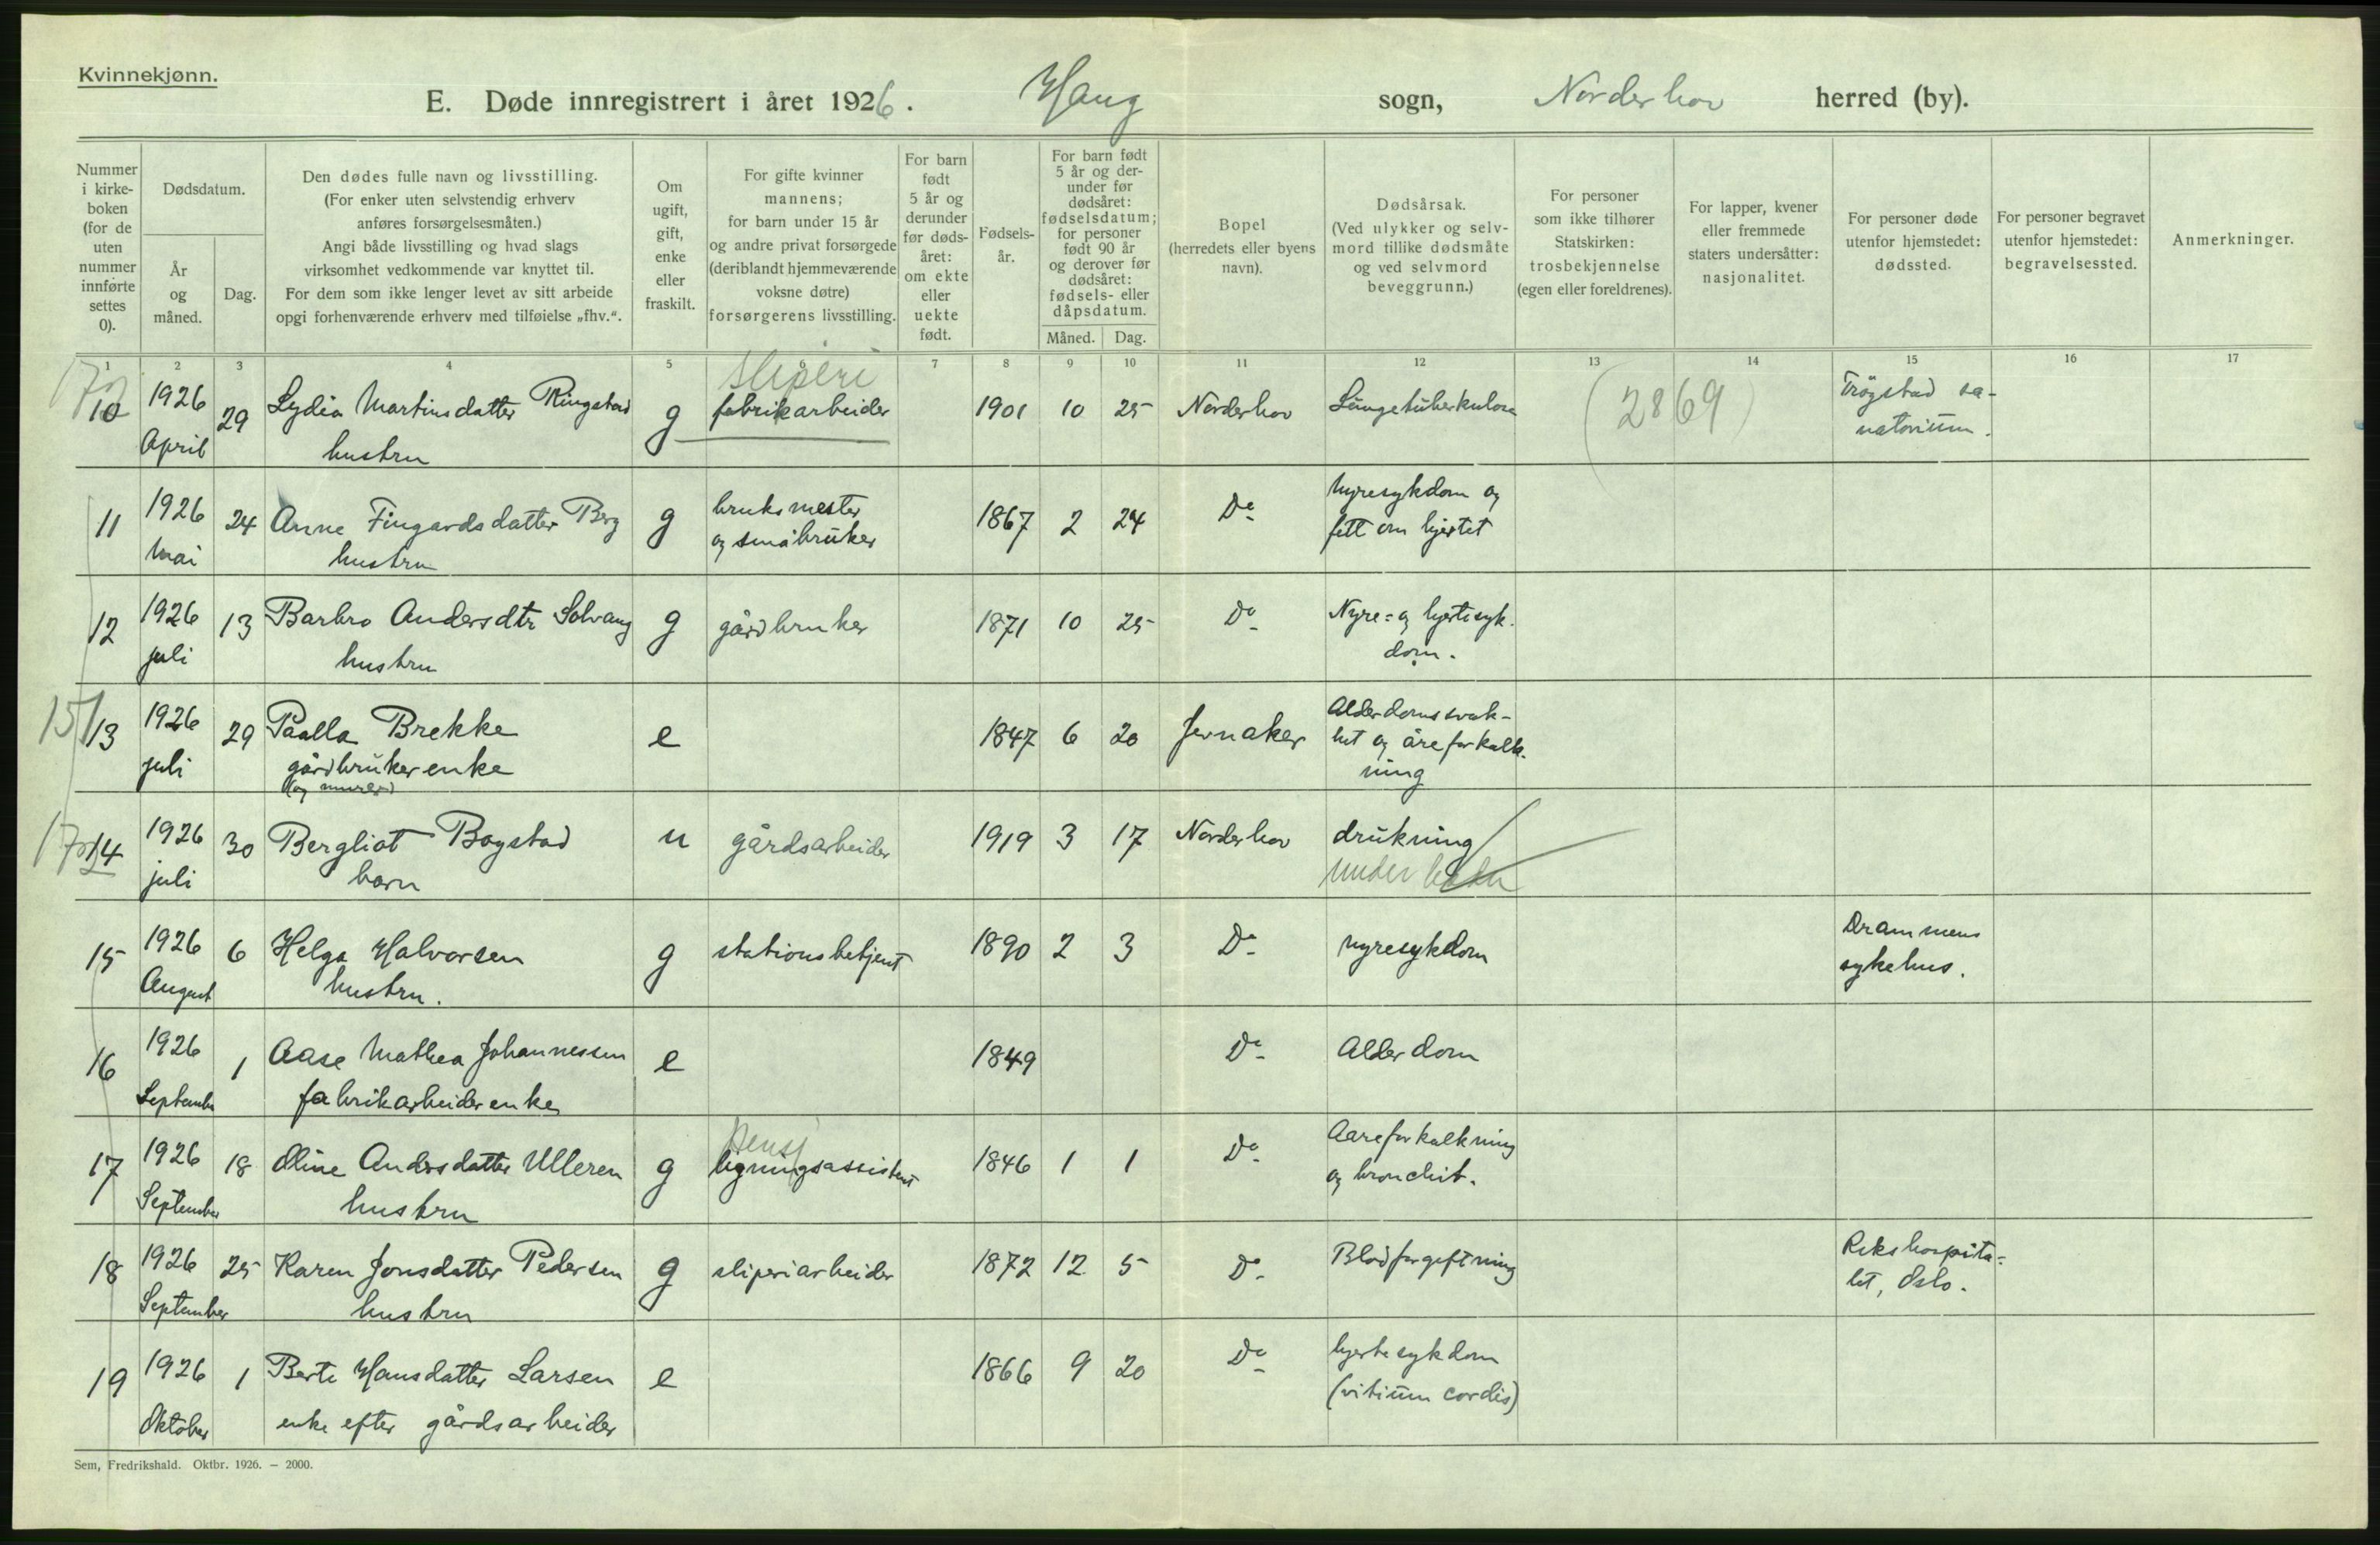 Kvinnekjønn.
E. Døde innregistrert i året 1926. Haug sogn, Norderhov herred (by).
Nummer i kirkeboken (for de uten nummer innførte settes 0).
Dødsdatum.
År og måned.
Dag.
Den dødes fulle navn og livsstilling.
(For enker uten selvstendig erhverv
anføres forsørgelsesmåten.)
Angi både livsstilling og hvad slags
virksomhet vedkommende var knyttet til.
For dem som ikke lenger levet av sitt arbeide
opgi forhenværende erhverv med tilføielse „fhv.“.
Om ugift, gift, enke eller fraskilt.
For gifte kvinner
mannens;
for barn under 15 år
og andre privat forsørgede
(deriblandt hjemmeværende
voksne døtre)
forsørgerens livsstilling.
For barn født 5 år og derunder før dødsåret: om ekte eller uekte født.
Fødsels-
år.
For barn født
5 år og der-
under før
dødsåret:
fødselsdatum;
for personer
født 90 år
og derover før
dødsåret:
fødsels- eller
dåpsdatum.
Måned. Dag.
Bopel
(herredets eller byens
navn).
Dødsårsak.
(Ved ulykker og selv-
mord tillike dødsmåte
og ved selvmord
beveggrunn.)
For personer
som ikke tilhører
Statskirken:
trosbekjennelse
(egen eller foreldrenes).
For lapper, kvener
eller fremmede
staters undersåtter:
nasjonalitet.
For personer døde
utenfor hjemstedet:
dødssted.
For personer begravet
utenfor hjemstedet:
begravelsessted.
Anmerkninger.
1 2 3 4 5 6 7 8 9 10 11 12 13 14 15 16 17
10 1926 April 29 Lydia Martinsdatter Ringstad hustru g sliperi fabrikarbeider 1901 10 25 Norderhov Lungetuberkulose (2869) Trøgstad sa-
natorium.
11 1926 Mai 24 Anne Fingardsdatter Berg hustru g bruksmester og småbruker 1867 2 24 Do Nyresykdom og fett om hjertet
12 1926 juli 13 Barbro Andersdtr Solvang hustru g gårdbruker 1871 10 25 Do Nyre= og hjertesyk.
dom.
151 13 1926 juli 29 Paalla Brekke gårdbrukerenke (og murer) e 1847 6 20 Jevnaker Alderdomssvak-
het og åreforkalk-
ning
14 1926 juli 30 Bergliot Bogstad barn u gårdsarbeider 1919 3 17 Norderhov drukning under
15 1926 August 6 Helga Halvorsen hustru. g stationsbetjent 1890 2 3 Do nyresykdom Drammens sykehus.
16 1926 September 1 Aase Mathea Johannessen fabrikarbeiderenke e 1849 Do Alderdom
17 1926 September 18 Oline Andersdatter Ulleren hustru g pensj ligningsassistent 1846 1 1 Do Aareforkalkning og bronchit.
18 1926 September 25 Karen Jonsdatter Pedersen hustru g sliperiarbeider 1872 12 5 Do Blodforgiftning Rikshospita=
let, Oslo.
19 1926 Oktober 1 Berte Hansdatter Larsen enke efter gårdsarbeider e 1866 9 20 Do hjertesykdom (vitium cordis)
Sem, Fredrikshald. Oktbr. 1926. – 2000.